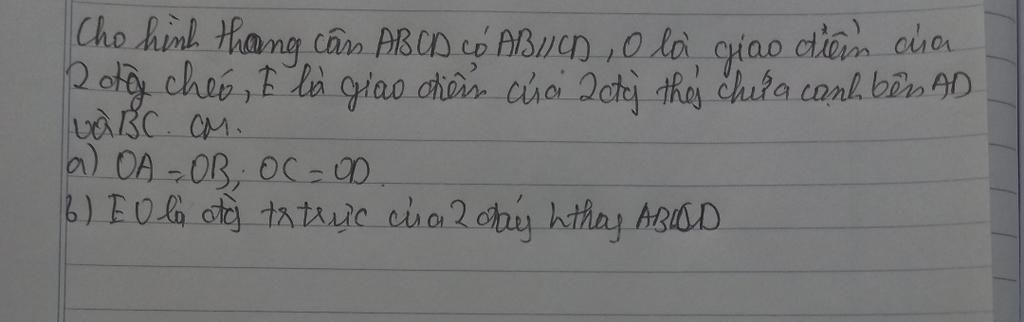 Cho hình thang cân ABCD có AB//CD, O là giao điểm của
2 đg chéo, E là giao điểm của 2 đg thg chứa cạnh bên AD
và BC. CM.
a) OA = OB; OC = OD
b) EO là đg tr trực của 2 đáy hthag ABCD